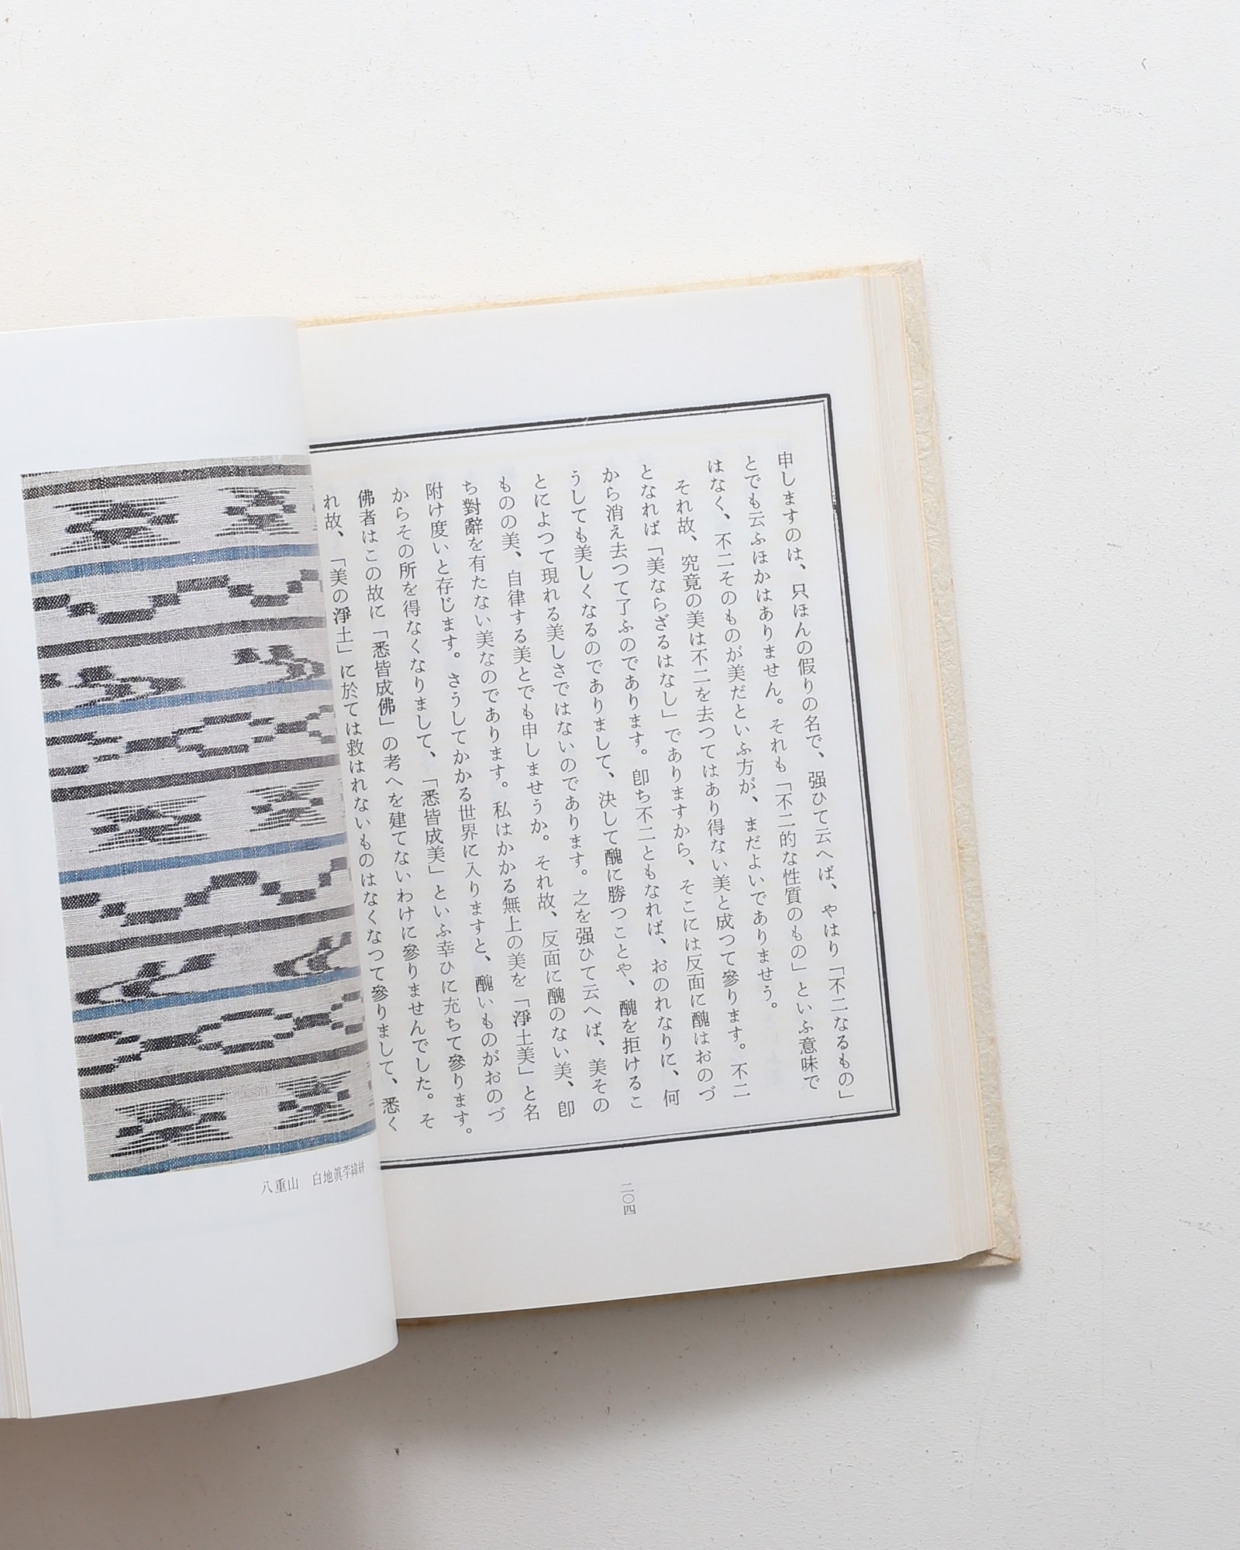 申しますのは、只ほんの假りの名で、强ひて云へば、やはり「不二なるもの」
とでも云ふほかはありません。それも「不二的な性質のもの」といふ意味で
はなく、不二そのものが美だといふ方が、まだよいでありませう。
それ故、究竟の美は不二を去つてはあり得ない美と成つて參ります。不二
となれば「美ならざるはなし」でありますから、そこには反面に醜はおのづ
から消え去つて了ふのであります。卽ち不二ともなれば、おのれなりに、何
うしても美しくなるのでありまして、決して醜に勝つことや、醜を拒けるこ
とによつて現れる美しさではないのであります。之を强ひて云へば、美その
ものの美、自律する美とでも申しませうか。それ故、反面に醜のない美、卽
ち對辭を有たない美なのであります。私はかかる無上の美を「淨土美」と名
附け度いと存じます。さうしてかかる世界に入りますと、醜いものがおのづ
からその所を得なくなりまして、「悉皆成美」といふ幸ひに充ちて參ります。
佛者はこの故に「悉皆成佛」の考へを建てないわけに參りませんでした。そ
れ故、「美の淨土」に於ては救はれないものはなくなつて參りまして、悉く
二〇四
八重山 白地眞苧緯絣